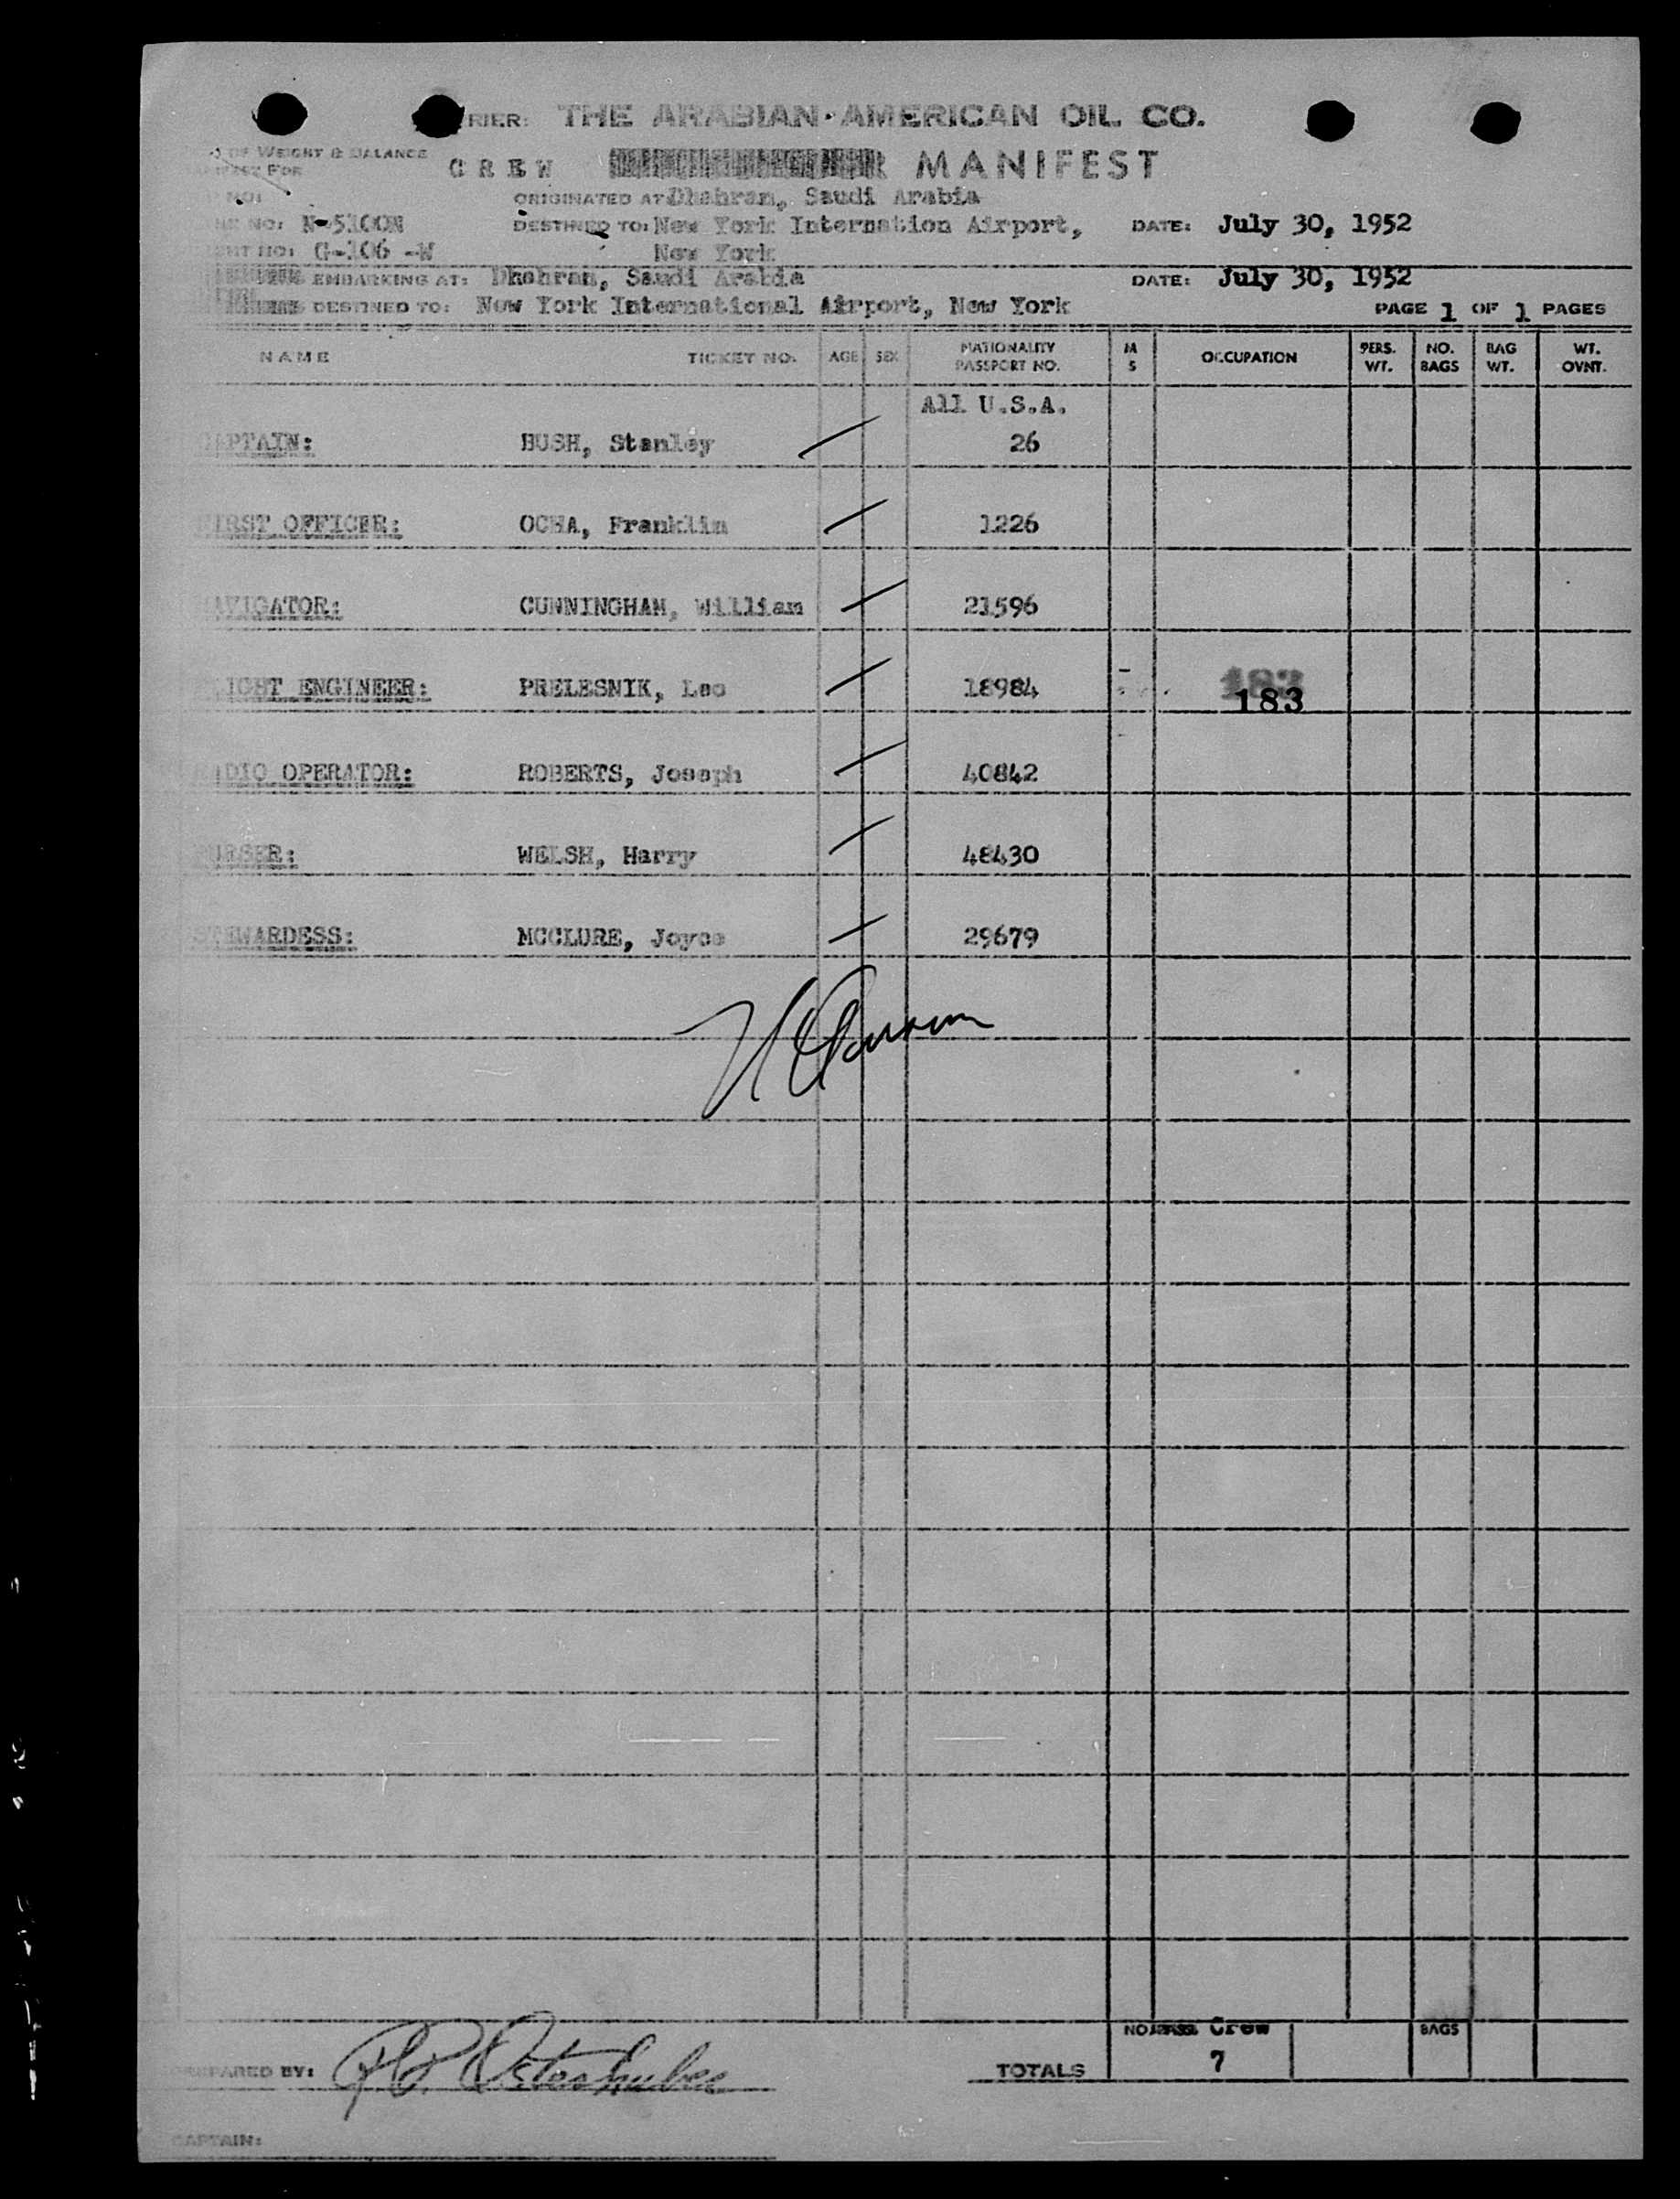 RIER: THE ARABIAN·AMERICAN OIL CO.
OF WEIGHT & BALANCE
FOR
CREW MANIFEST
NO:
ORIGINATED AT: Dhahran, Saudi Arabia
NO: N-5100N DESTINED TO: New York Internation Airport, DATE: July 30, 1952
NO: G-106 -W New York
EMBARKING AT: Dhahran, Saudi Arabia DATE: July 30, 1952
DESTINED TO: New York International Airport, New York PAGE 1 OF 1 PAGES
NAME TICKET NO. AGE SEX NATIONALITY PASSPORT NO. M S OCCUPATION PERS. WT. NO. BAGS BAG WT. WT. OVNT.
All U.S.A.
APTAIN: BUSH, Stanley 26
IRST OFFICER: OCHA, Franklin 1226
AVIGATOR: CUNNINGHAM, William 21596
IGHT ENGINEER: PRELESNIK, Leo 18984
183
183
ADIO OPERATOR: ROBERTS, Joseph 40842
URSER: WELSH, Harry 48430
TEWARDESS: MCCLURE, Joyce 29679
NO. Crew BAGS
PREPARED BY: TOTALS 7
CAPTAIN: